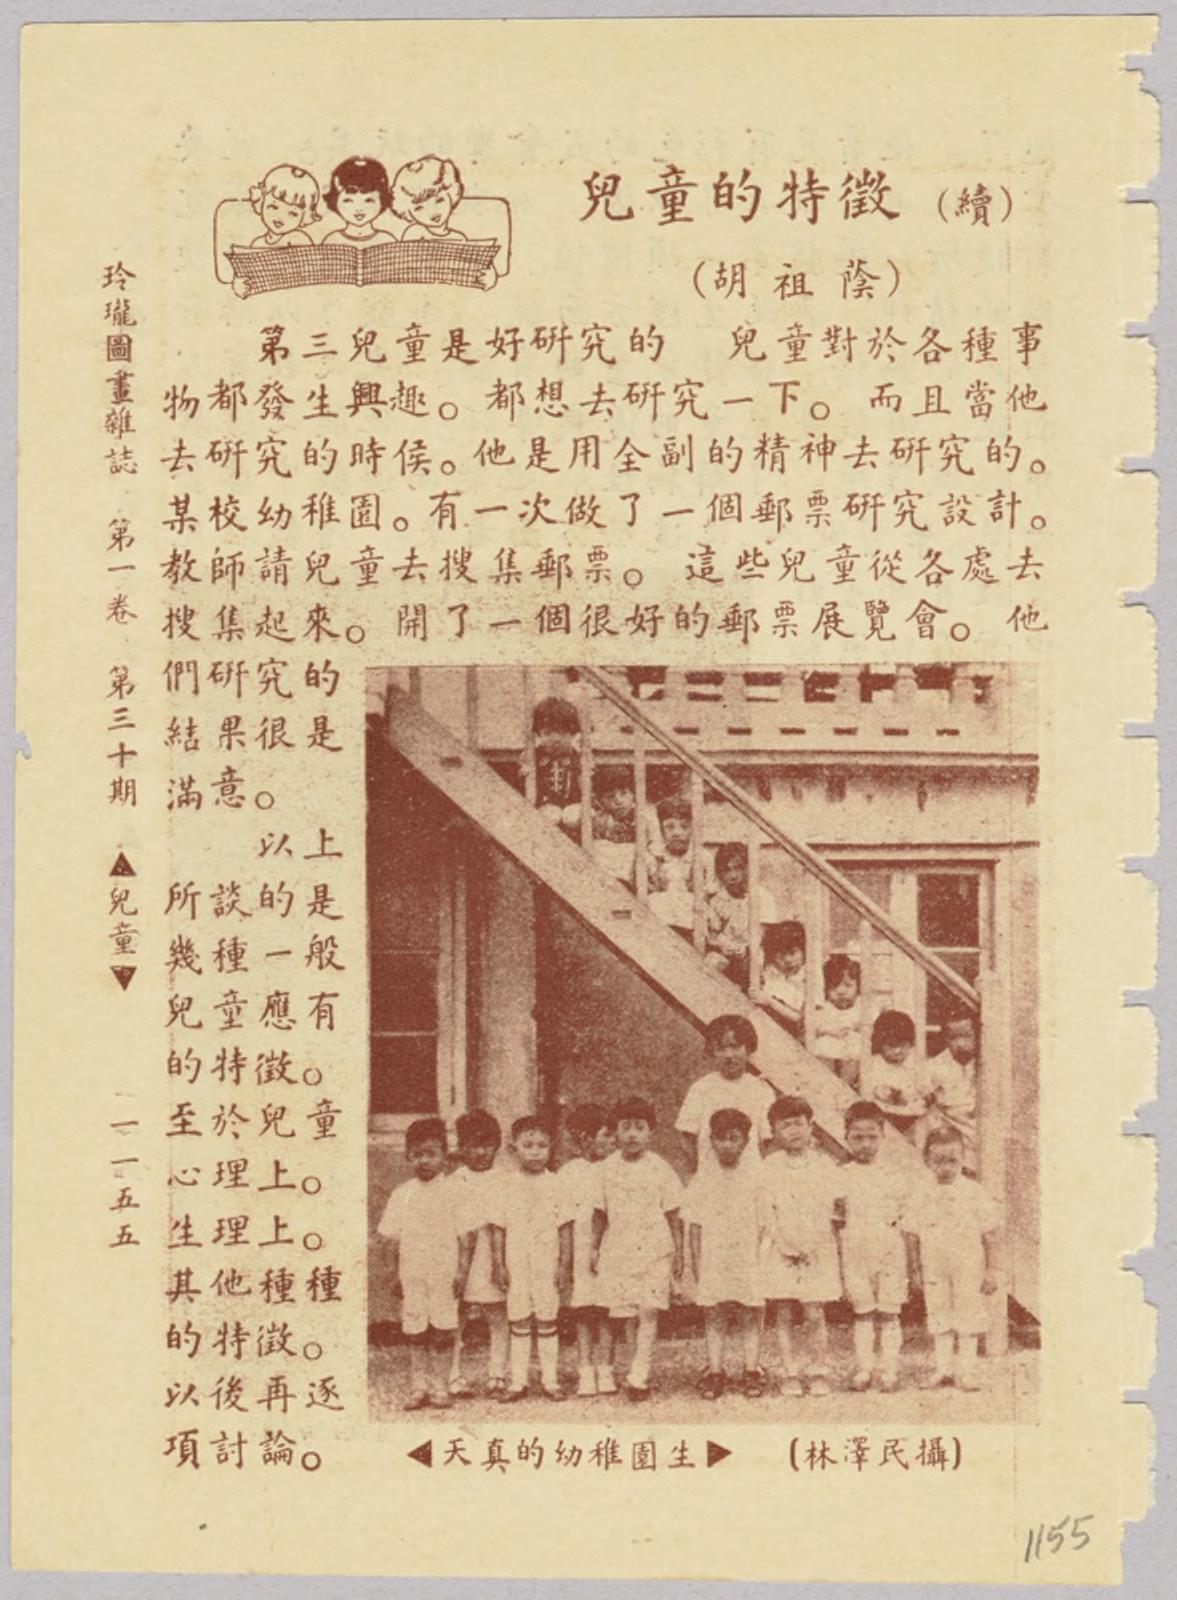 兒童的特徵 (續)
(胡祖蔭)
第三兒童是好硏究的 兒童對於各種事
物都發生興趣。都想去硏究一下。而且當他
去硏究的時侯。他是用全副的精神去硏究的。
某校幼稚園。有一次做了一個郵票硏究設計。
教師請兒童去搜集郵票。這些兒童從各處去
搜集起來。開了一個很好的郵票展覽會。他
們硏究的
結果很是
滿意。
以上
所談的是
幾種一般
兒童應有
的特徵。
至於兒童
心理上。
生理上。
其他種種
的特徵。
以後再逐
項討論。
◀天真的幼稚園生▶ (林澤民攝)
玲瓏圖畫雜誌 第一卷 第三十期 ▲兒童▼ 一一五五
1155